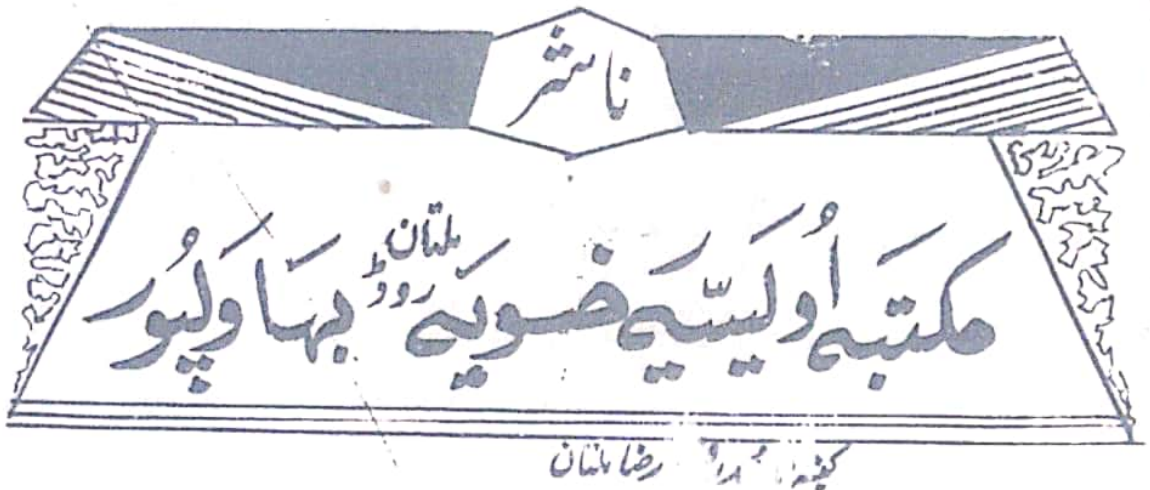 ناشر
مکتبہ اُویسیہ رضویہ ملتان روڈ بہاولپور
رضا ملتان